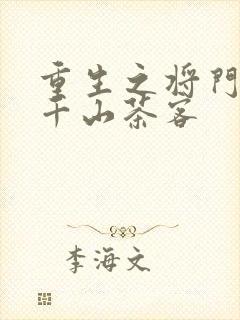 重生之将门
千山茶客
李海文